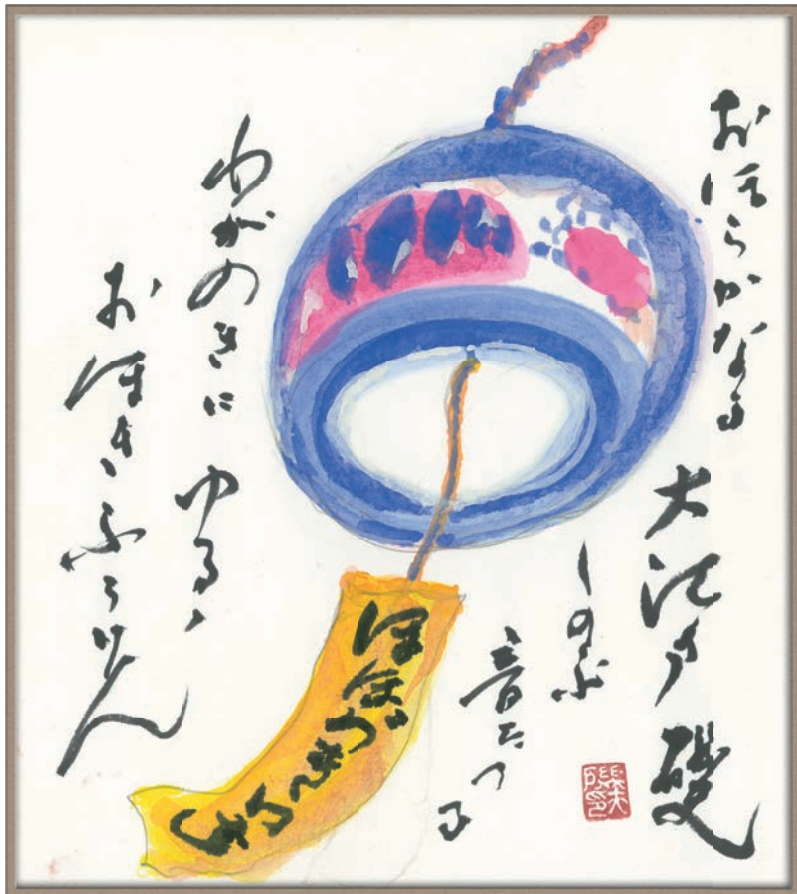 おほらかなる
大江戸
しのぶ
音たつる
わがのきに ゆるゝ
おほきふうりん
ほほづきいち